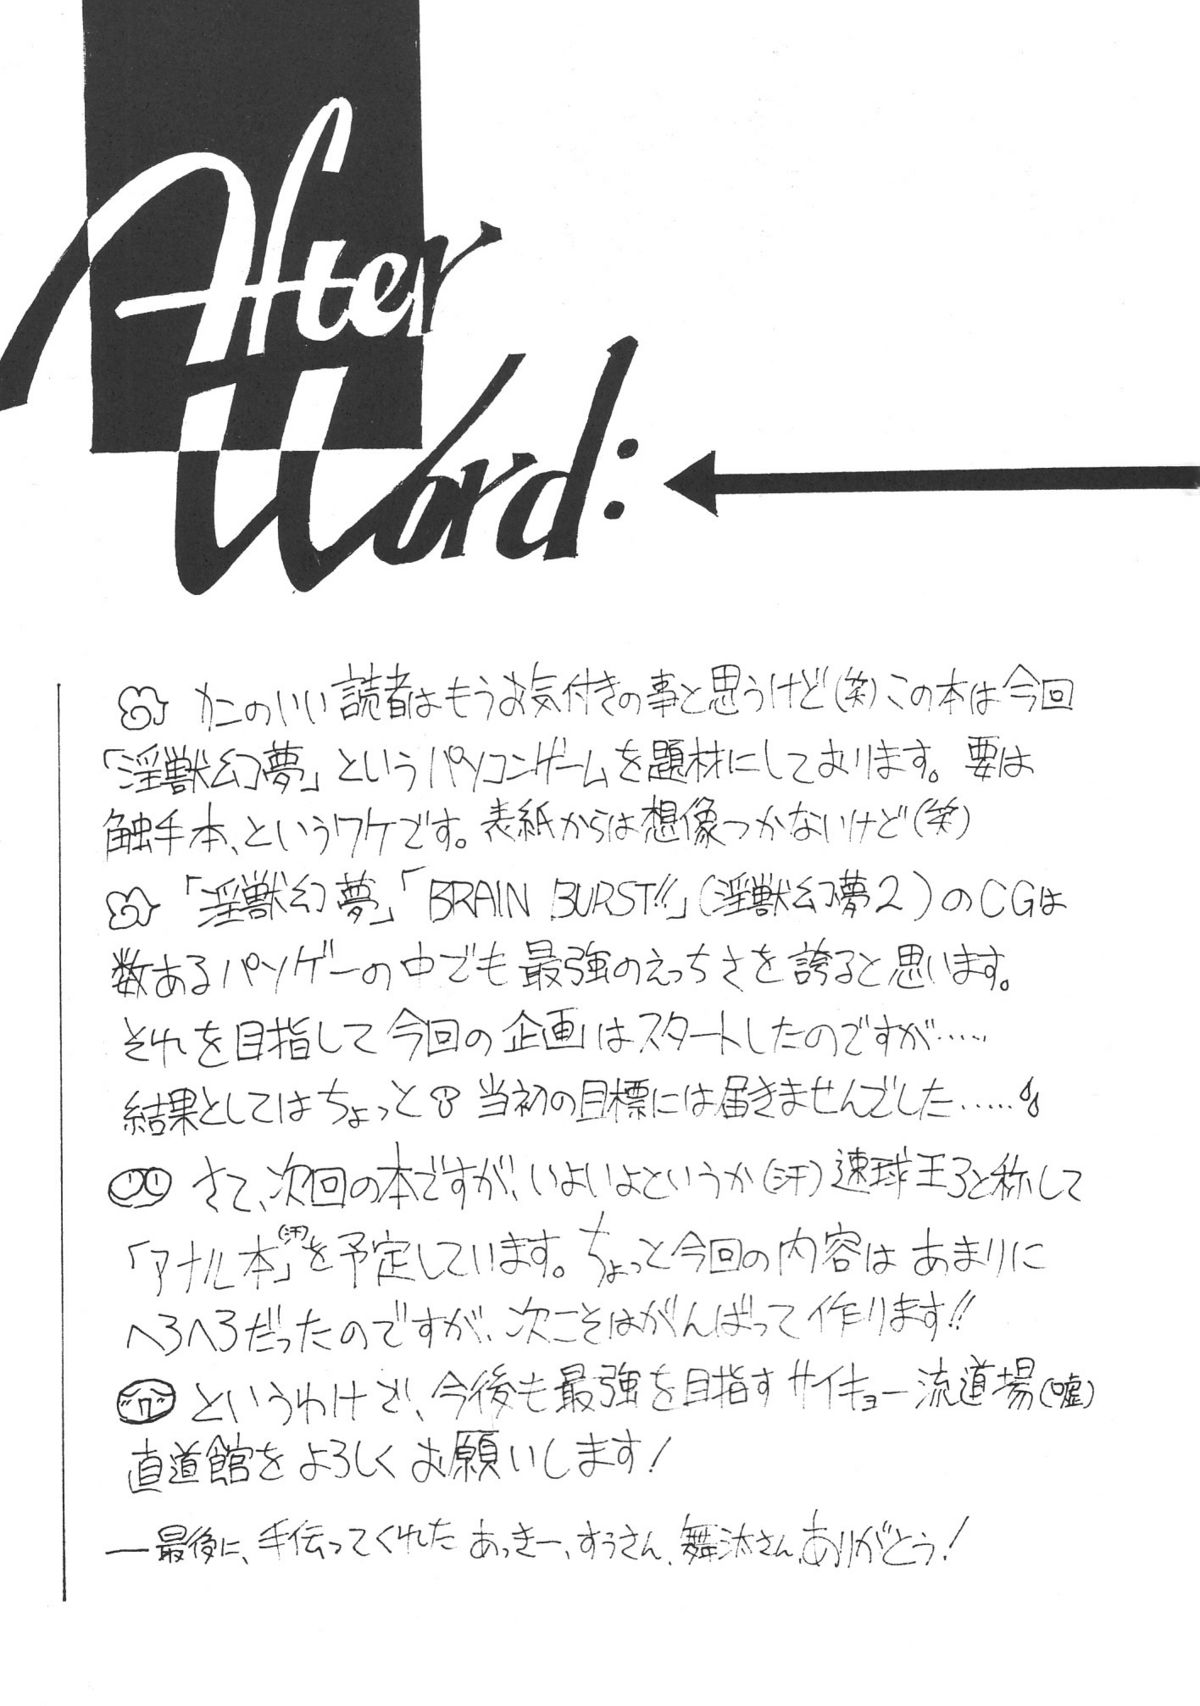 After
Word:
カンのいい読者はもうお気付きの事と思うけど(笑)この本は今回
「淫獣幻夢」というパソコンゲームを題材にしております。要は
触手本、というワケです。表紙からは想像つかないけど(笑)
「淫獣幻夢」「BRAIN BURST!!」(淫獣幻夢2)のCGは
数あるパソゲーの中でも最強のえっちさを誇ると思います。
それを目指して今回の企画はスタートしたのですが……
結果としてはちょっと当初の目標には届きませんでした……
さて、次回の本ですが、いよいよというか(汗)速球王3と称して
「アナル本(汗)」を予定しています。ちょっと今回の内容はあまりに
へろへろだったのですが、次こそはがんばって作ります!!
というわけで、今後も最強を目指すサイキョー流道場(嘘)
直道館をよろしくお願いします!
―最後に、手伝ってくれたあっきー、すうさん、舞汰さん、ありがとう!